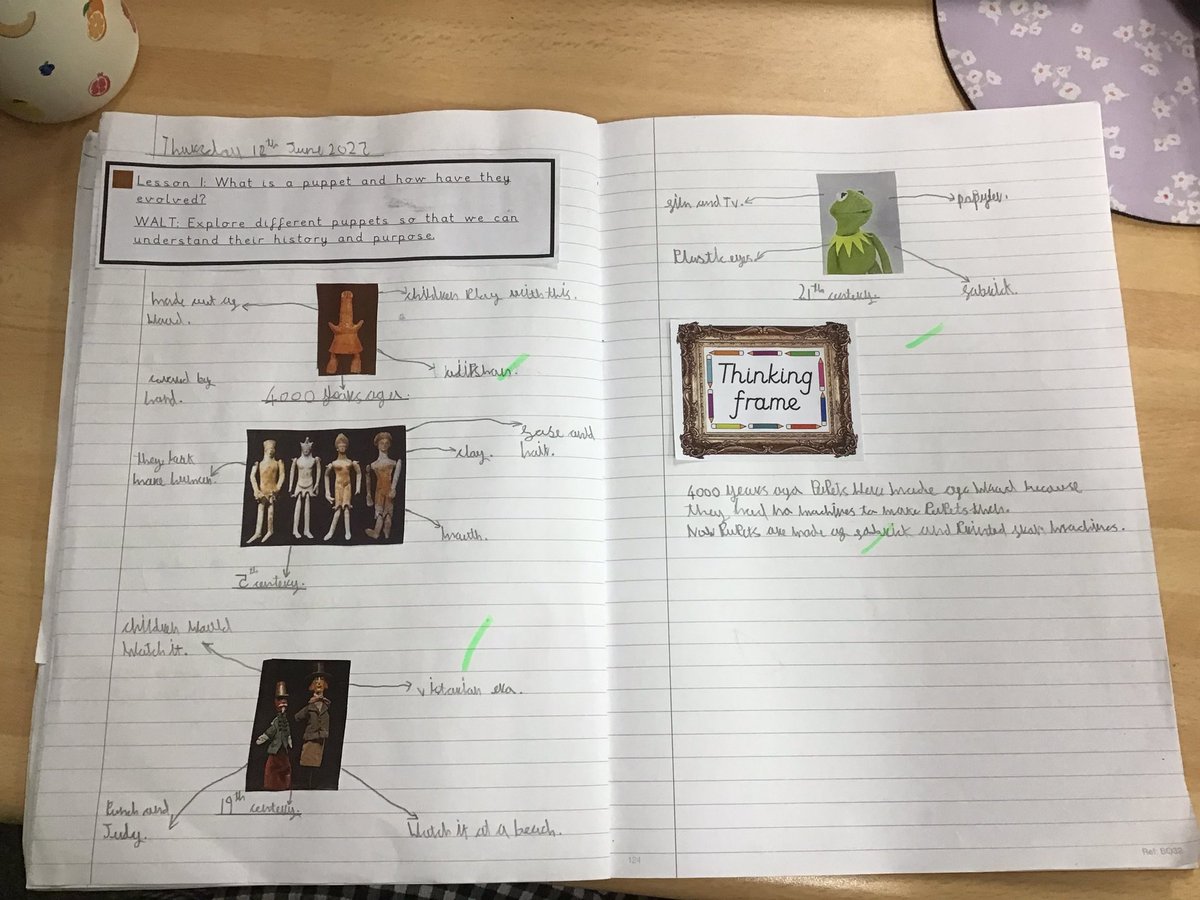 Thursday 12th June 2022
Lesson 1: What is a puppet and how have they
evolved?
WALT: Explore different puppets so that we can
understand their history and purpose.
made out of
children Play with this.
covered by
hand.
4000 years ago.
face and
hair.
clay.
they look
mouth.
centery.
children would
Watch it.
victorian era.
Punch and
Judy.
19th centery.
Watch it at a beach.
film and Tv.
popyler.
Plastic eyes.
21th centery.
Thinking
frame
4000 years ago PuPets Were made of because
they had no machines to make PuPets then.
Now PuPets are made of and Printed machines.
124
Ref: SQ32